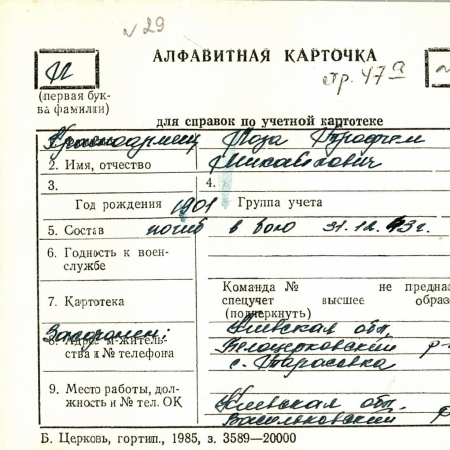 № 29
АЛФАВИТНАЯ КАРТОЧКА
стр. 47а
(первая бук-
ва фамилии)
для справок по учетной картотеке
Красноармеец Лоза Трофим
2. Имя, отчество Михайлович
3. 4.
Год рождения 1901 Группа учета
5. Состав погиб в бою 31.12.43г.
6. Годность к воен-
службе
Команда № не предназ
7. Картотека спецучет высшее образ
(подчеркнуть)
Захоронен: Киевская обл.
8. Адрес м-житель- Белоцерковский р-
ства и № телефона с. Тарасовка
9. Место работы, дол- Киевская обл.
жность и № тел. ОК Васильковский р
Б. Церковь, гортип., 1985, з. 3589—20000